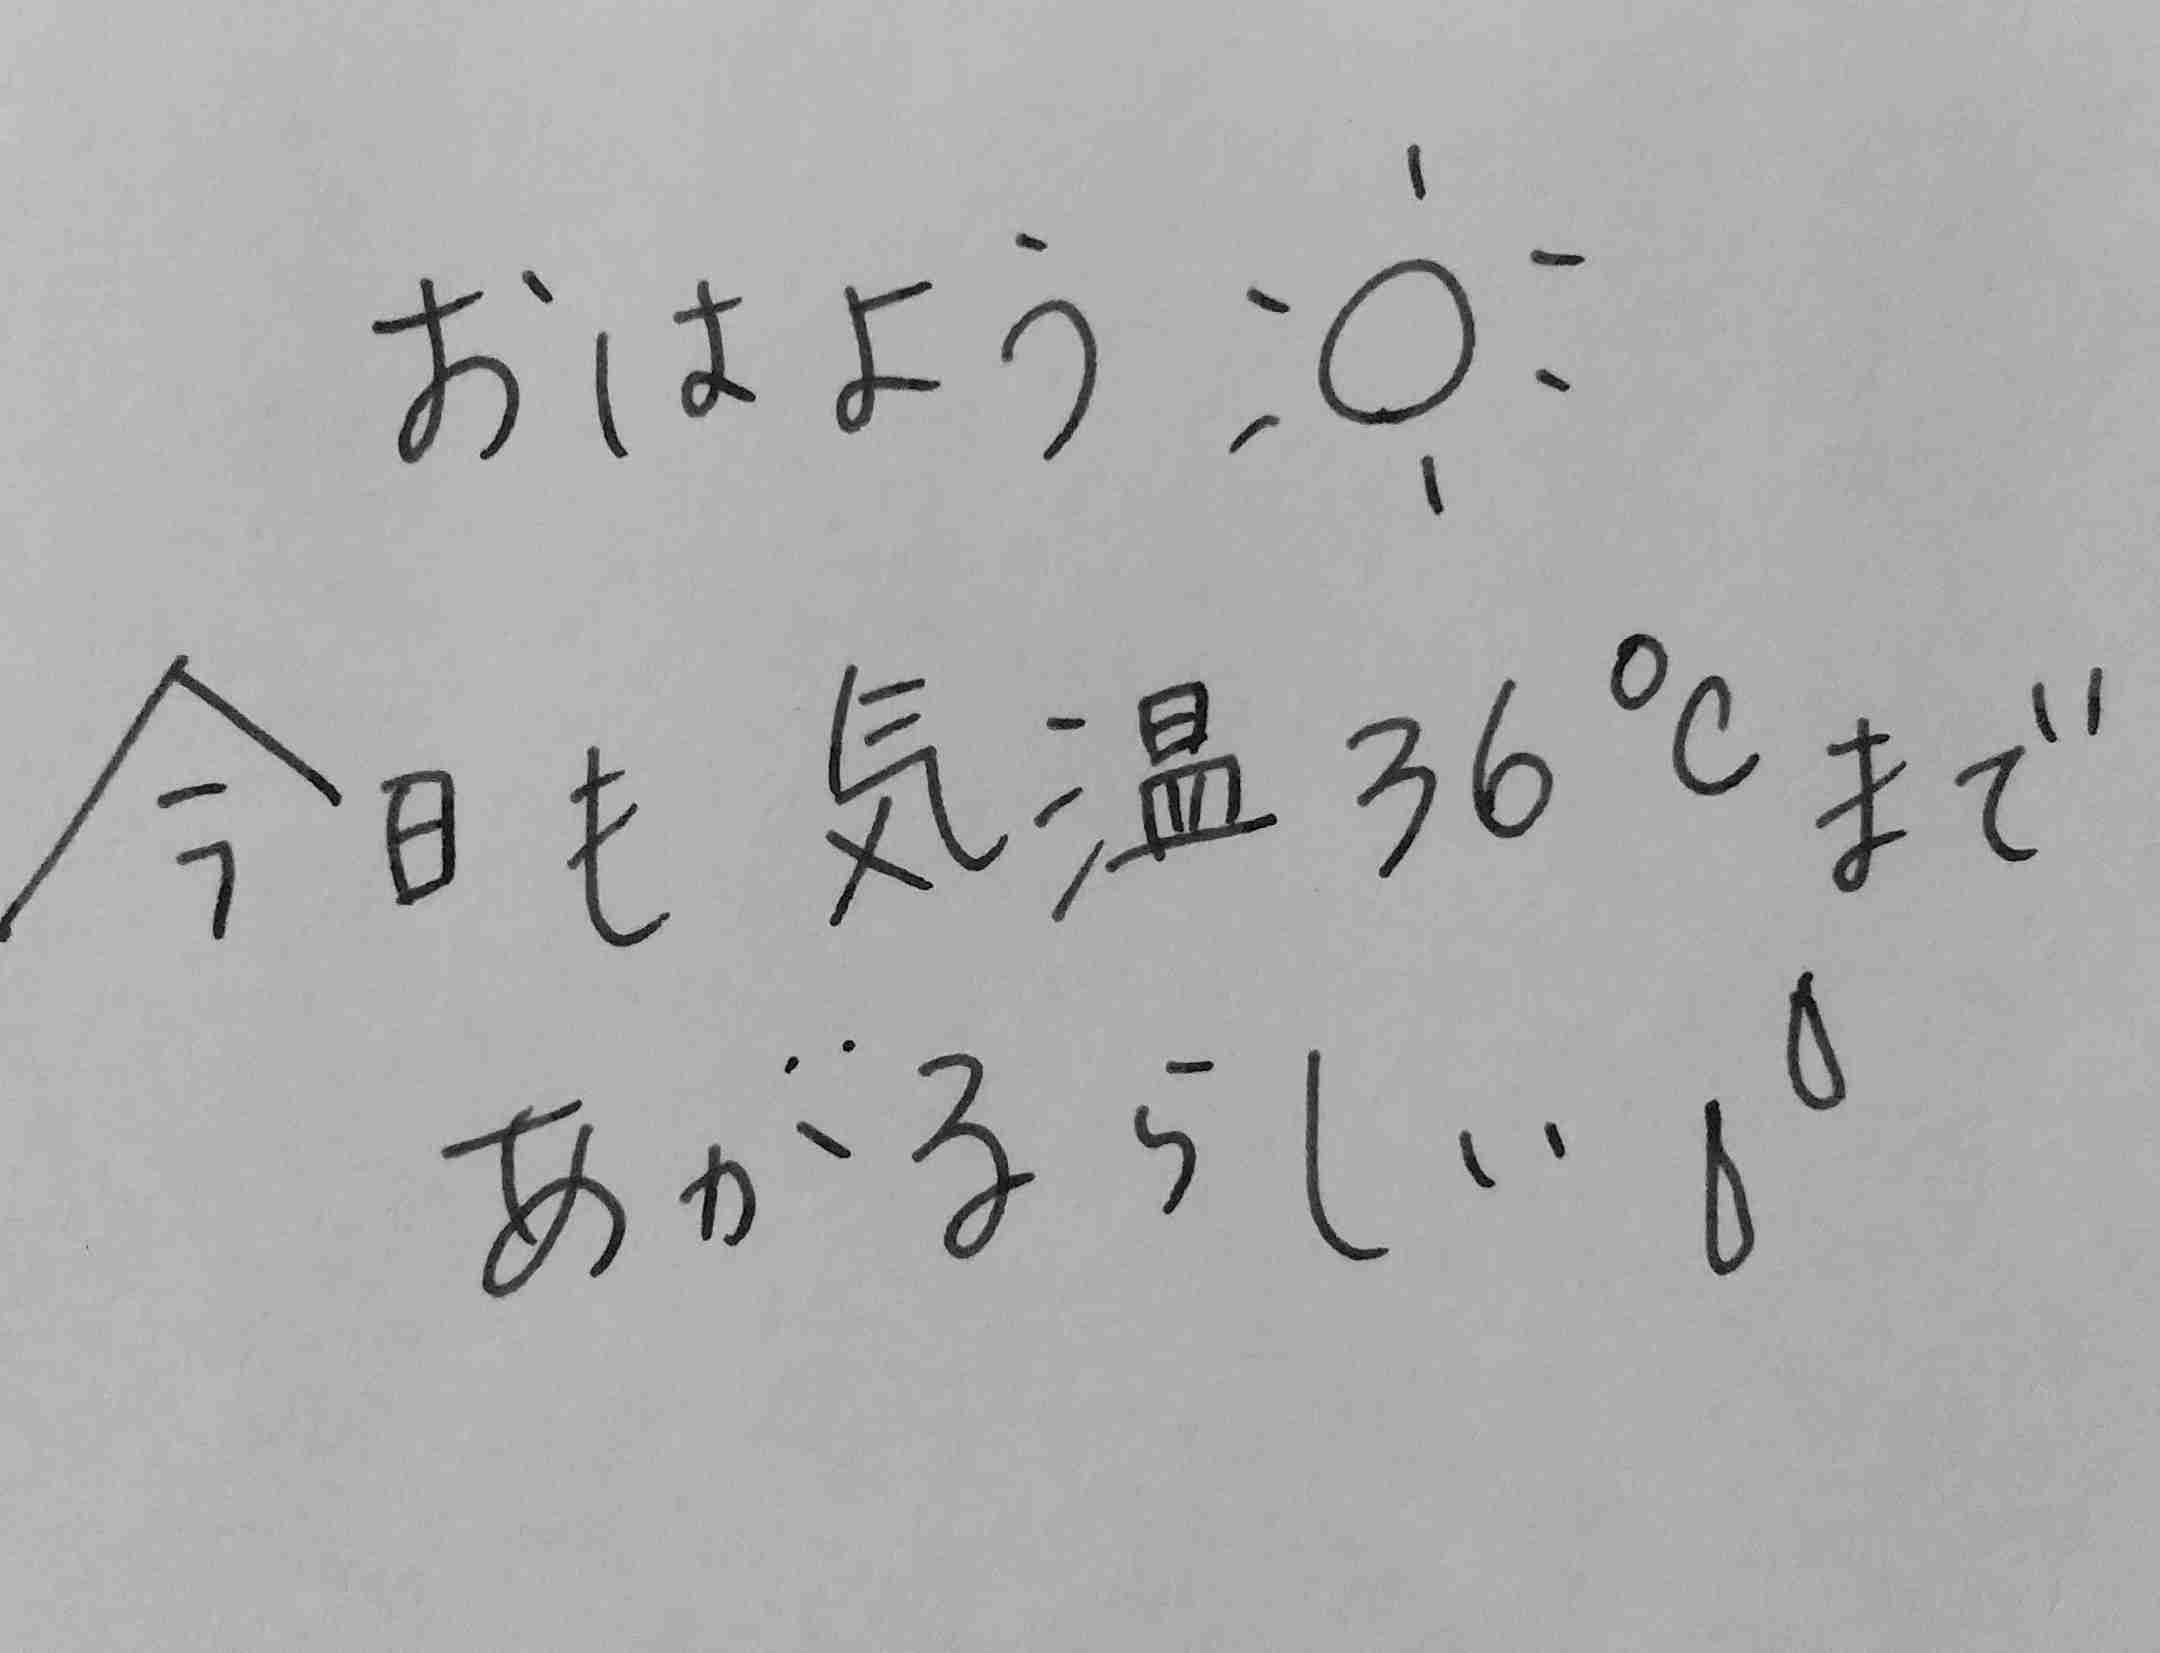 おはよう
今日も気温36℃まで
あがるらしい